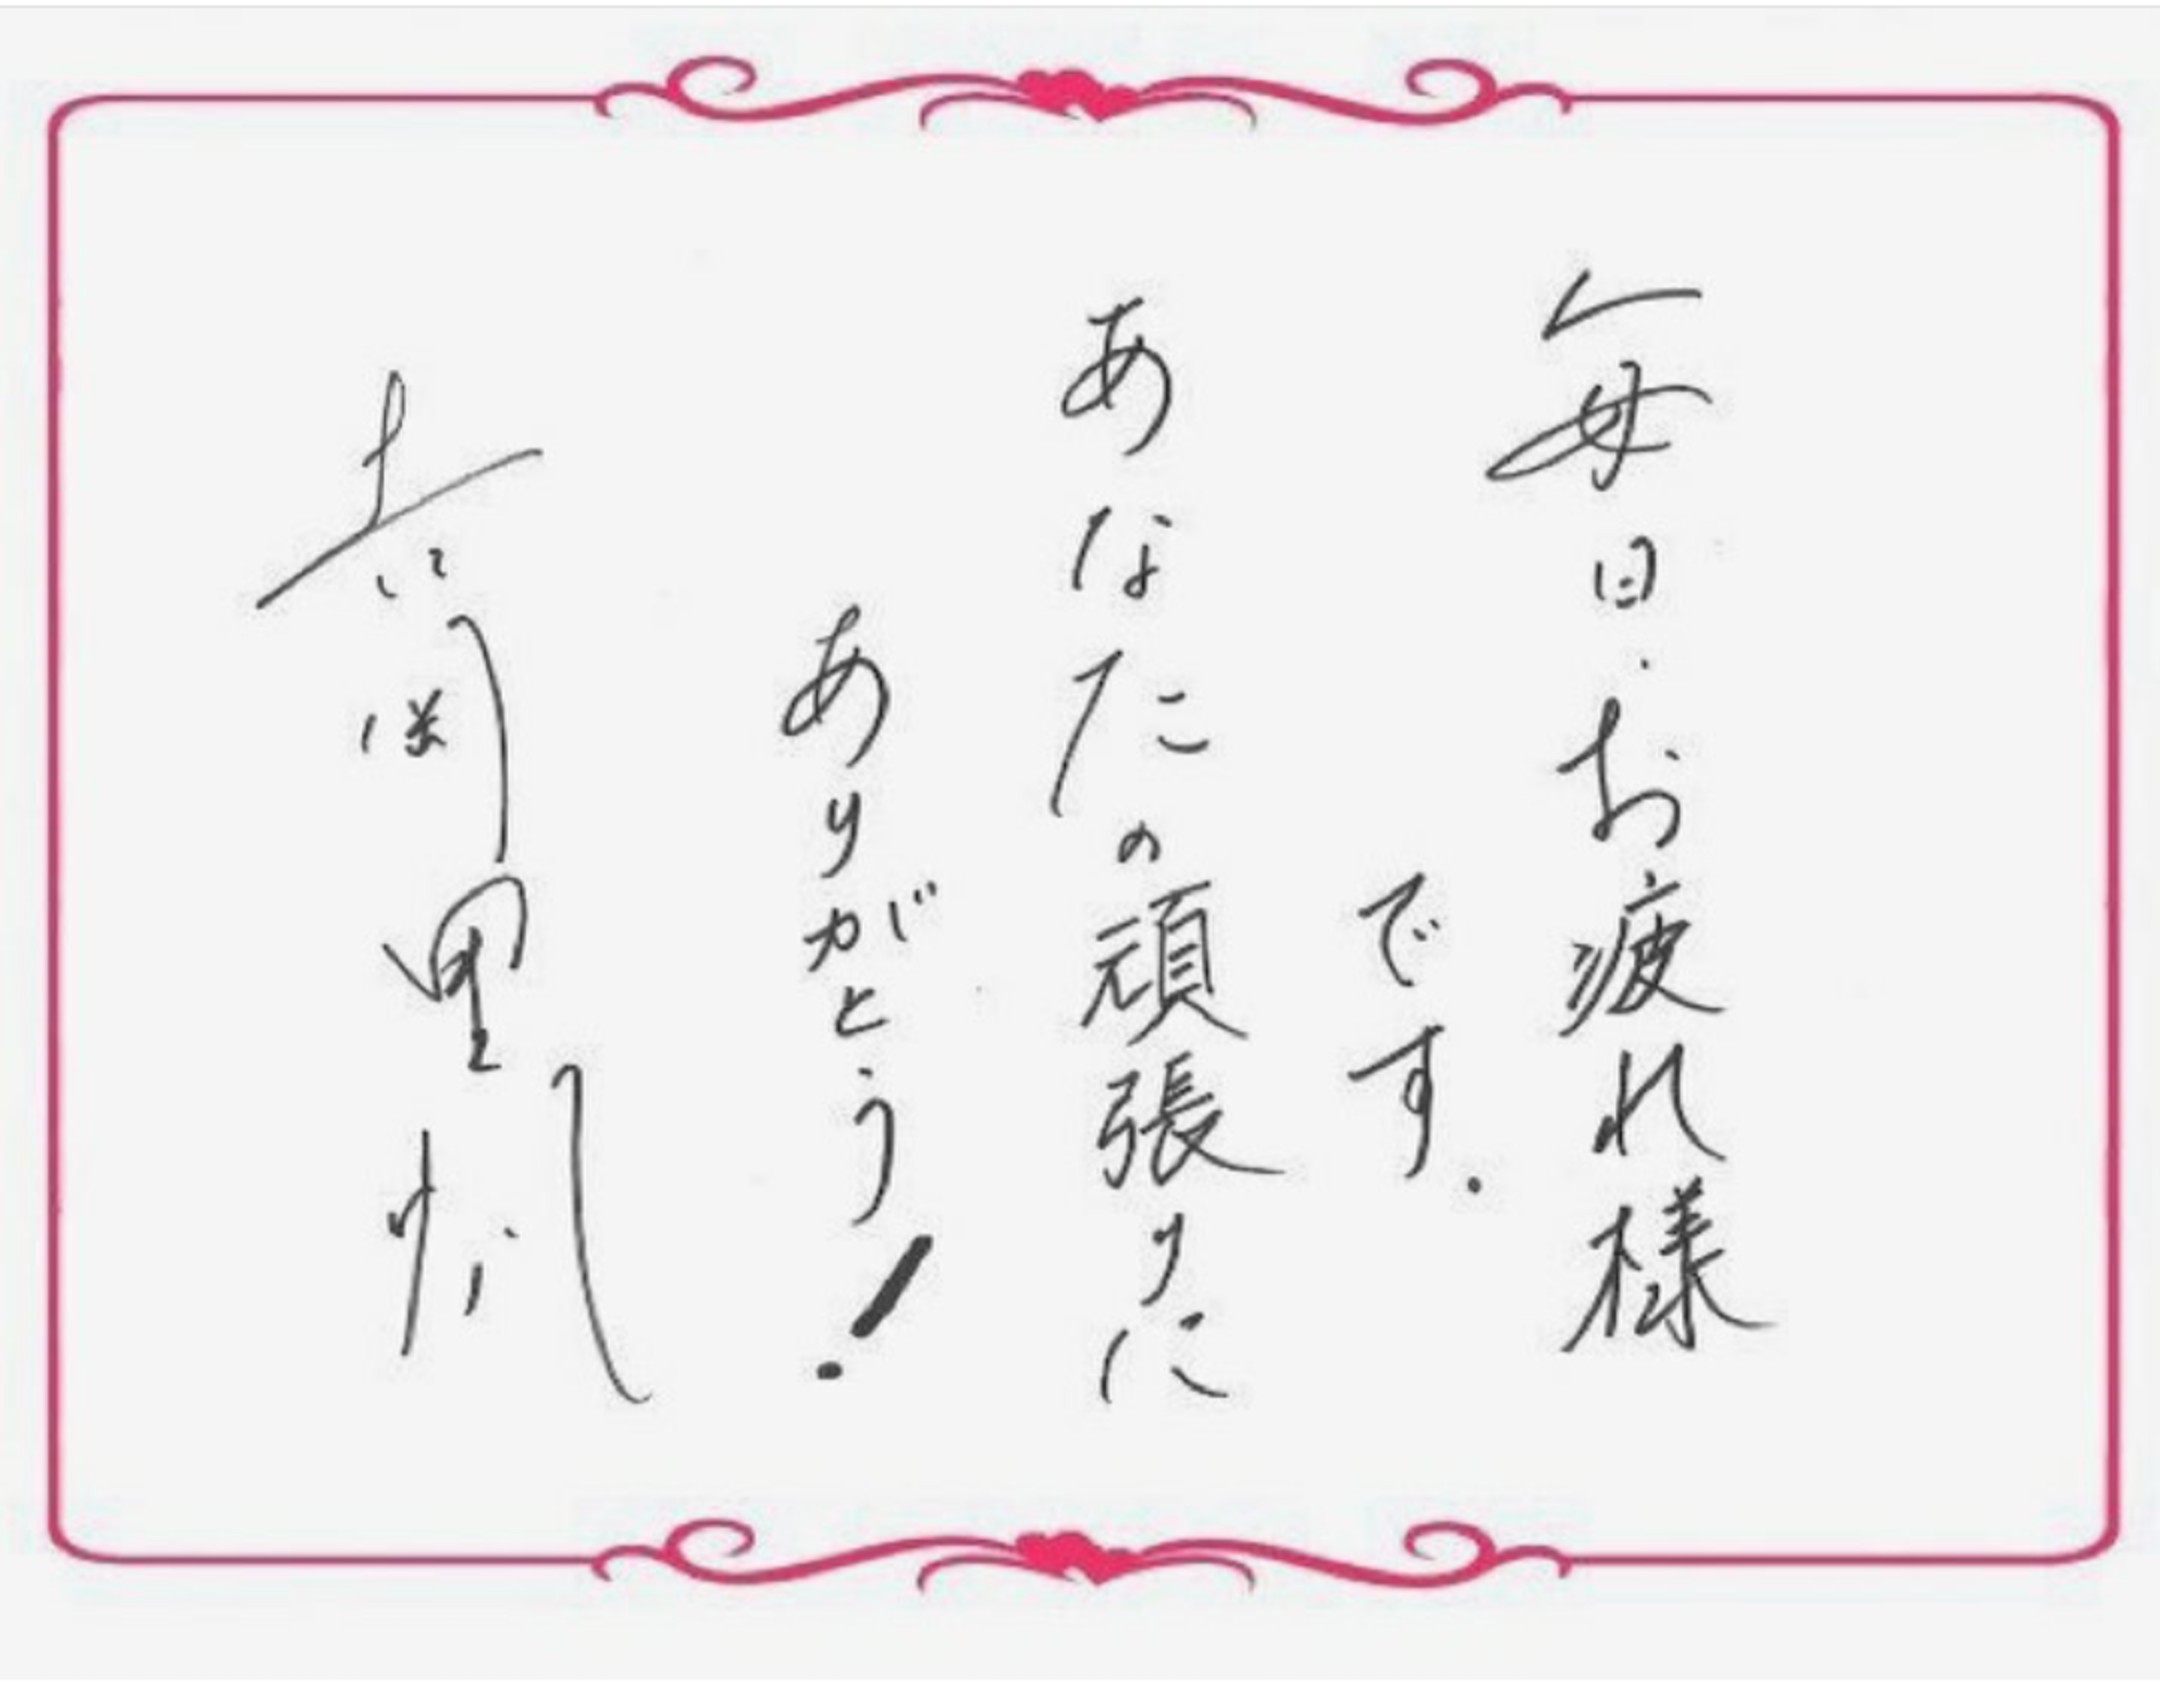 毎日お疲れ様
です.
あなたの頑張りに
ありがとう!